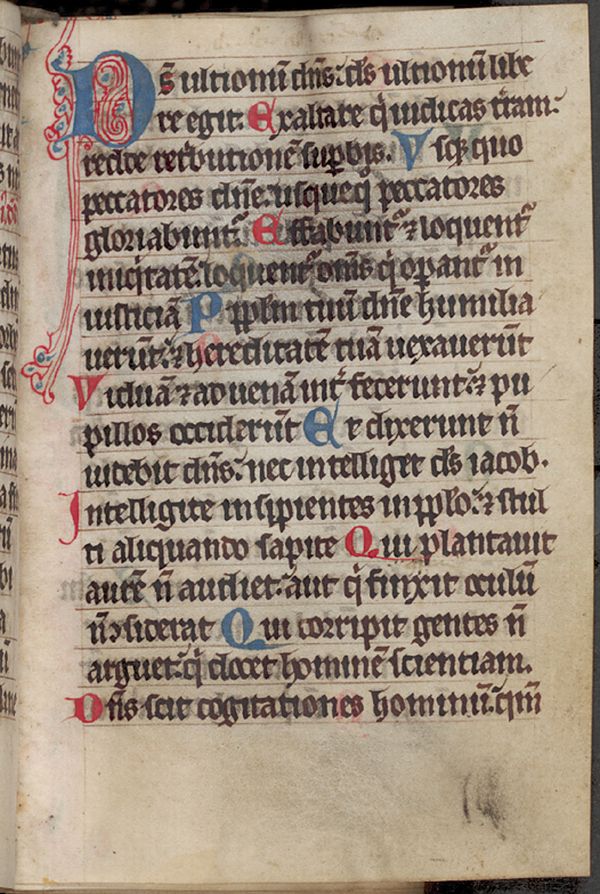 Ds̄ ultionū dn̄s: ds̄ ultionū libe
re egit: Exaltare q̇ iudicas t̄ram:
redde ret̉butionē suꝑbis. Vsqꝫ quo
peccatores dn̄e: usquequo peccatores
gloriabunt᷑: Effabunt᷑ ⁊ loquent᷑
iniq̇tatē: loquent᷑ om̄s q̇ oꝑant᷑ in
iusticiā Pplm̄ tuū dn̄e humilia
uerūt: ⁊ hereditatē tuā uexauerūt
Viduā ⁊ aduenā int̉fecerunt: ⁊ pu
pillos occiderūt Et dixerunt n̄
uidebit dn̄s: nec intelliget ds̄ iacob.
Intelligite insipientes in pplo: ⁊ stul
ti aliquando sapite Qui plantauit
aurē n̄ audiet: aut q̇ finxit oculū
n̄ ꝯsiderat Qui corripit gentes n̄
arguet: q̇ docet hominē scientiam.
Dn̄s scit cogitationes hominū: qm̄